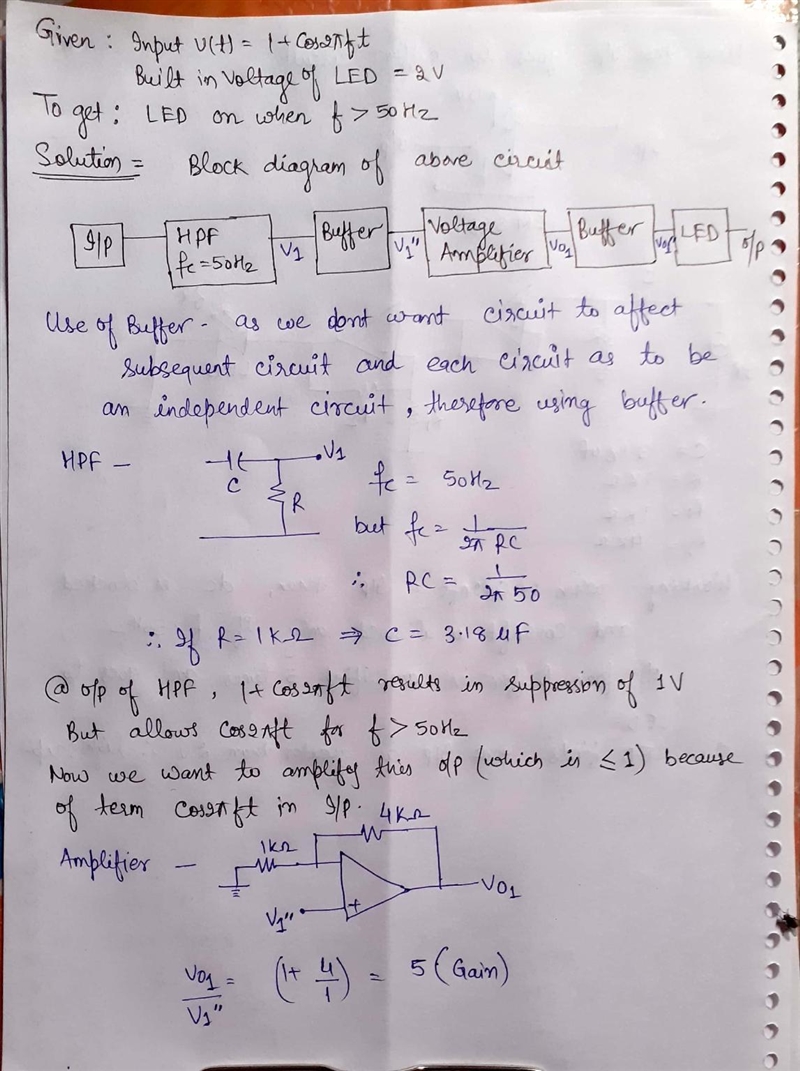 Given : Input v(t) = 1+ Cos2πft
Built in voltage of LED = 2V
To get : LED on when f > 50Hz
Solution = Block diagram of above circuit
I/p HPF fc = 50Hz V1 Buffer V1" Voltage Amplifier V01 Buffer V01" LED o/p
Use of Buffer - as we dont want circuit to affect
subsequent circuit and each circuit as to be
an independent circuit, therefore using buffer.
HPF - C R V1
fc = 50Hz
but fc = 1/2π RC
∴ RC = 1/2π 50
∴ If R = 1KΩ ⇒ C = 3.18 μF
@ o/p of HPF, 1+ Cos2πft results in suppression of 1V
But allows Cos2πft for f > 50Hz
Now we want to amplify this o/p (which is ≤ 1) because
of term Cos2πft in I/p.
4KΩ
Amplifier - 1KΩ
V01
V1" +
V01/V1" = (1+ 4/1) = 5 (Gain)